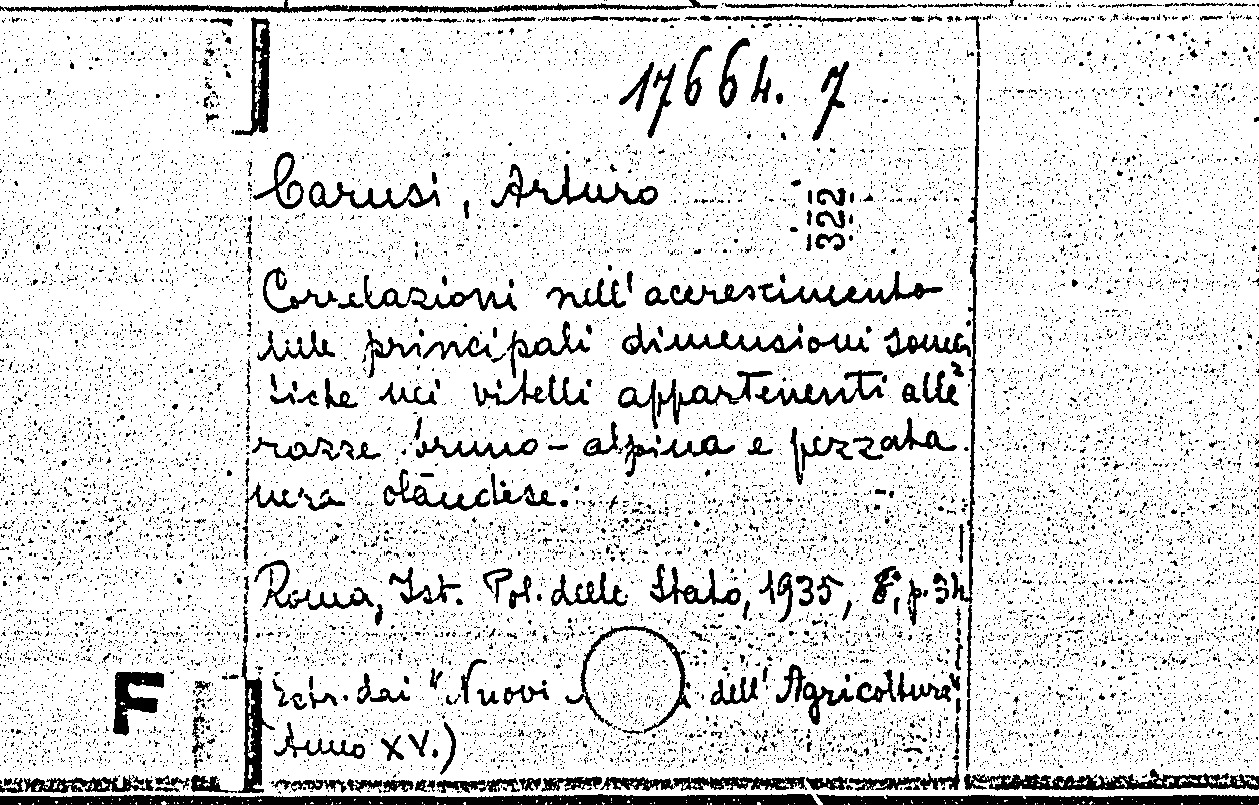 17664. 7
Carusi, Arturo
322
Correlazioni nell'accrescimento
delle principali dimensioni soma
tiche nei vitelli appartenenti alle
razze bruno-alpina e pezzata
nera olandese.
Roma, Ist. Pol. dello Stato, 1935, 8°, p. 34
Estr. dai "Nuovi dell'Agricoltura"
Anno XV.)
F